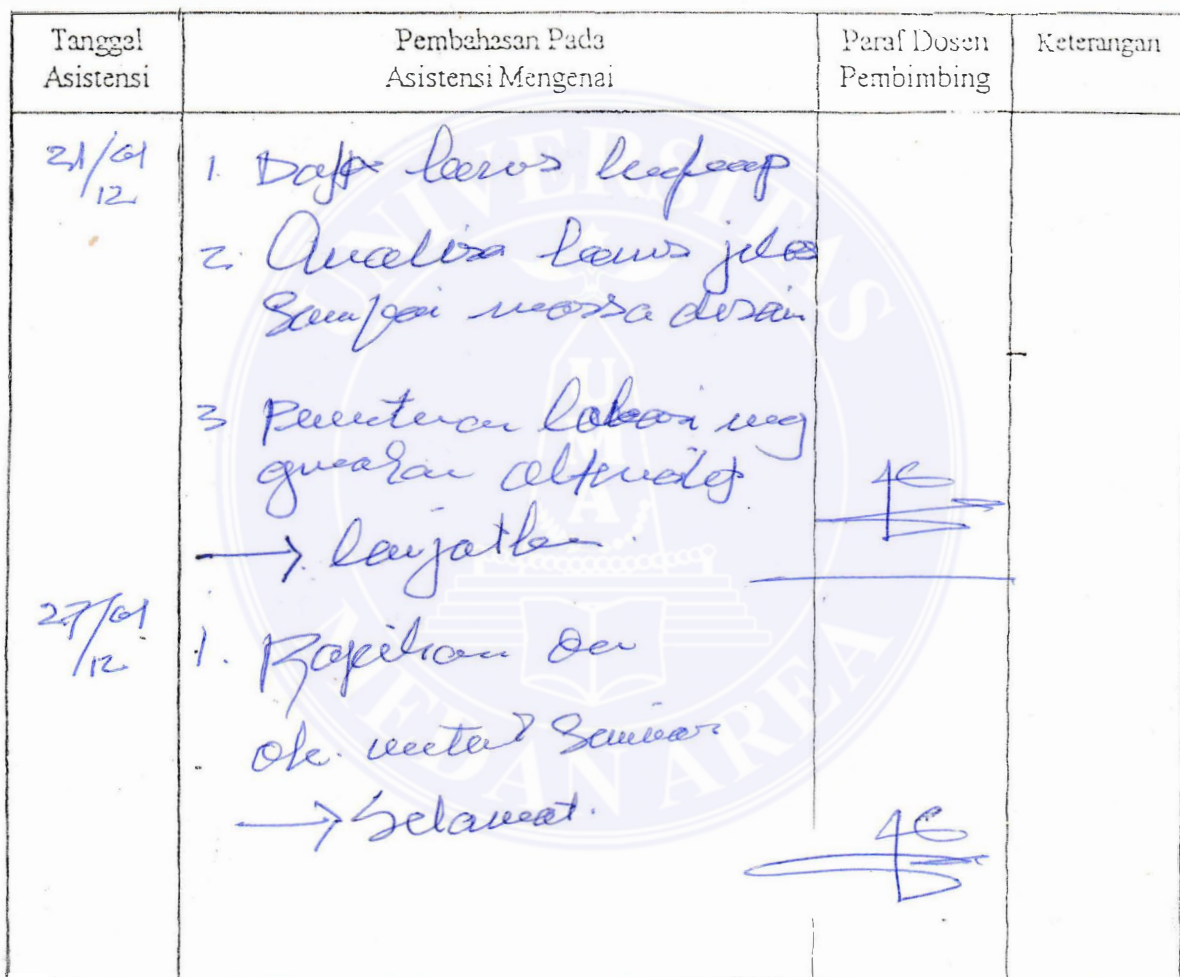 Tanggal
Asistensi
Pembahasan Pada
Asistensi Mengenai
Paraf Dosen
Pembimbing
Keterangan
21/01
/12
1. harus lengkap
2. Analisa harus jelas
sampai massa desain
3 Penentuan lokasi meng
gunakan alternatif
→ lanjutkan.
27/01
/12
1. Rapihan
ok. untuk Seminar
→ Selamat.
UNIVERSITAS
MEDAN AREA
UMA